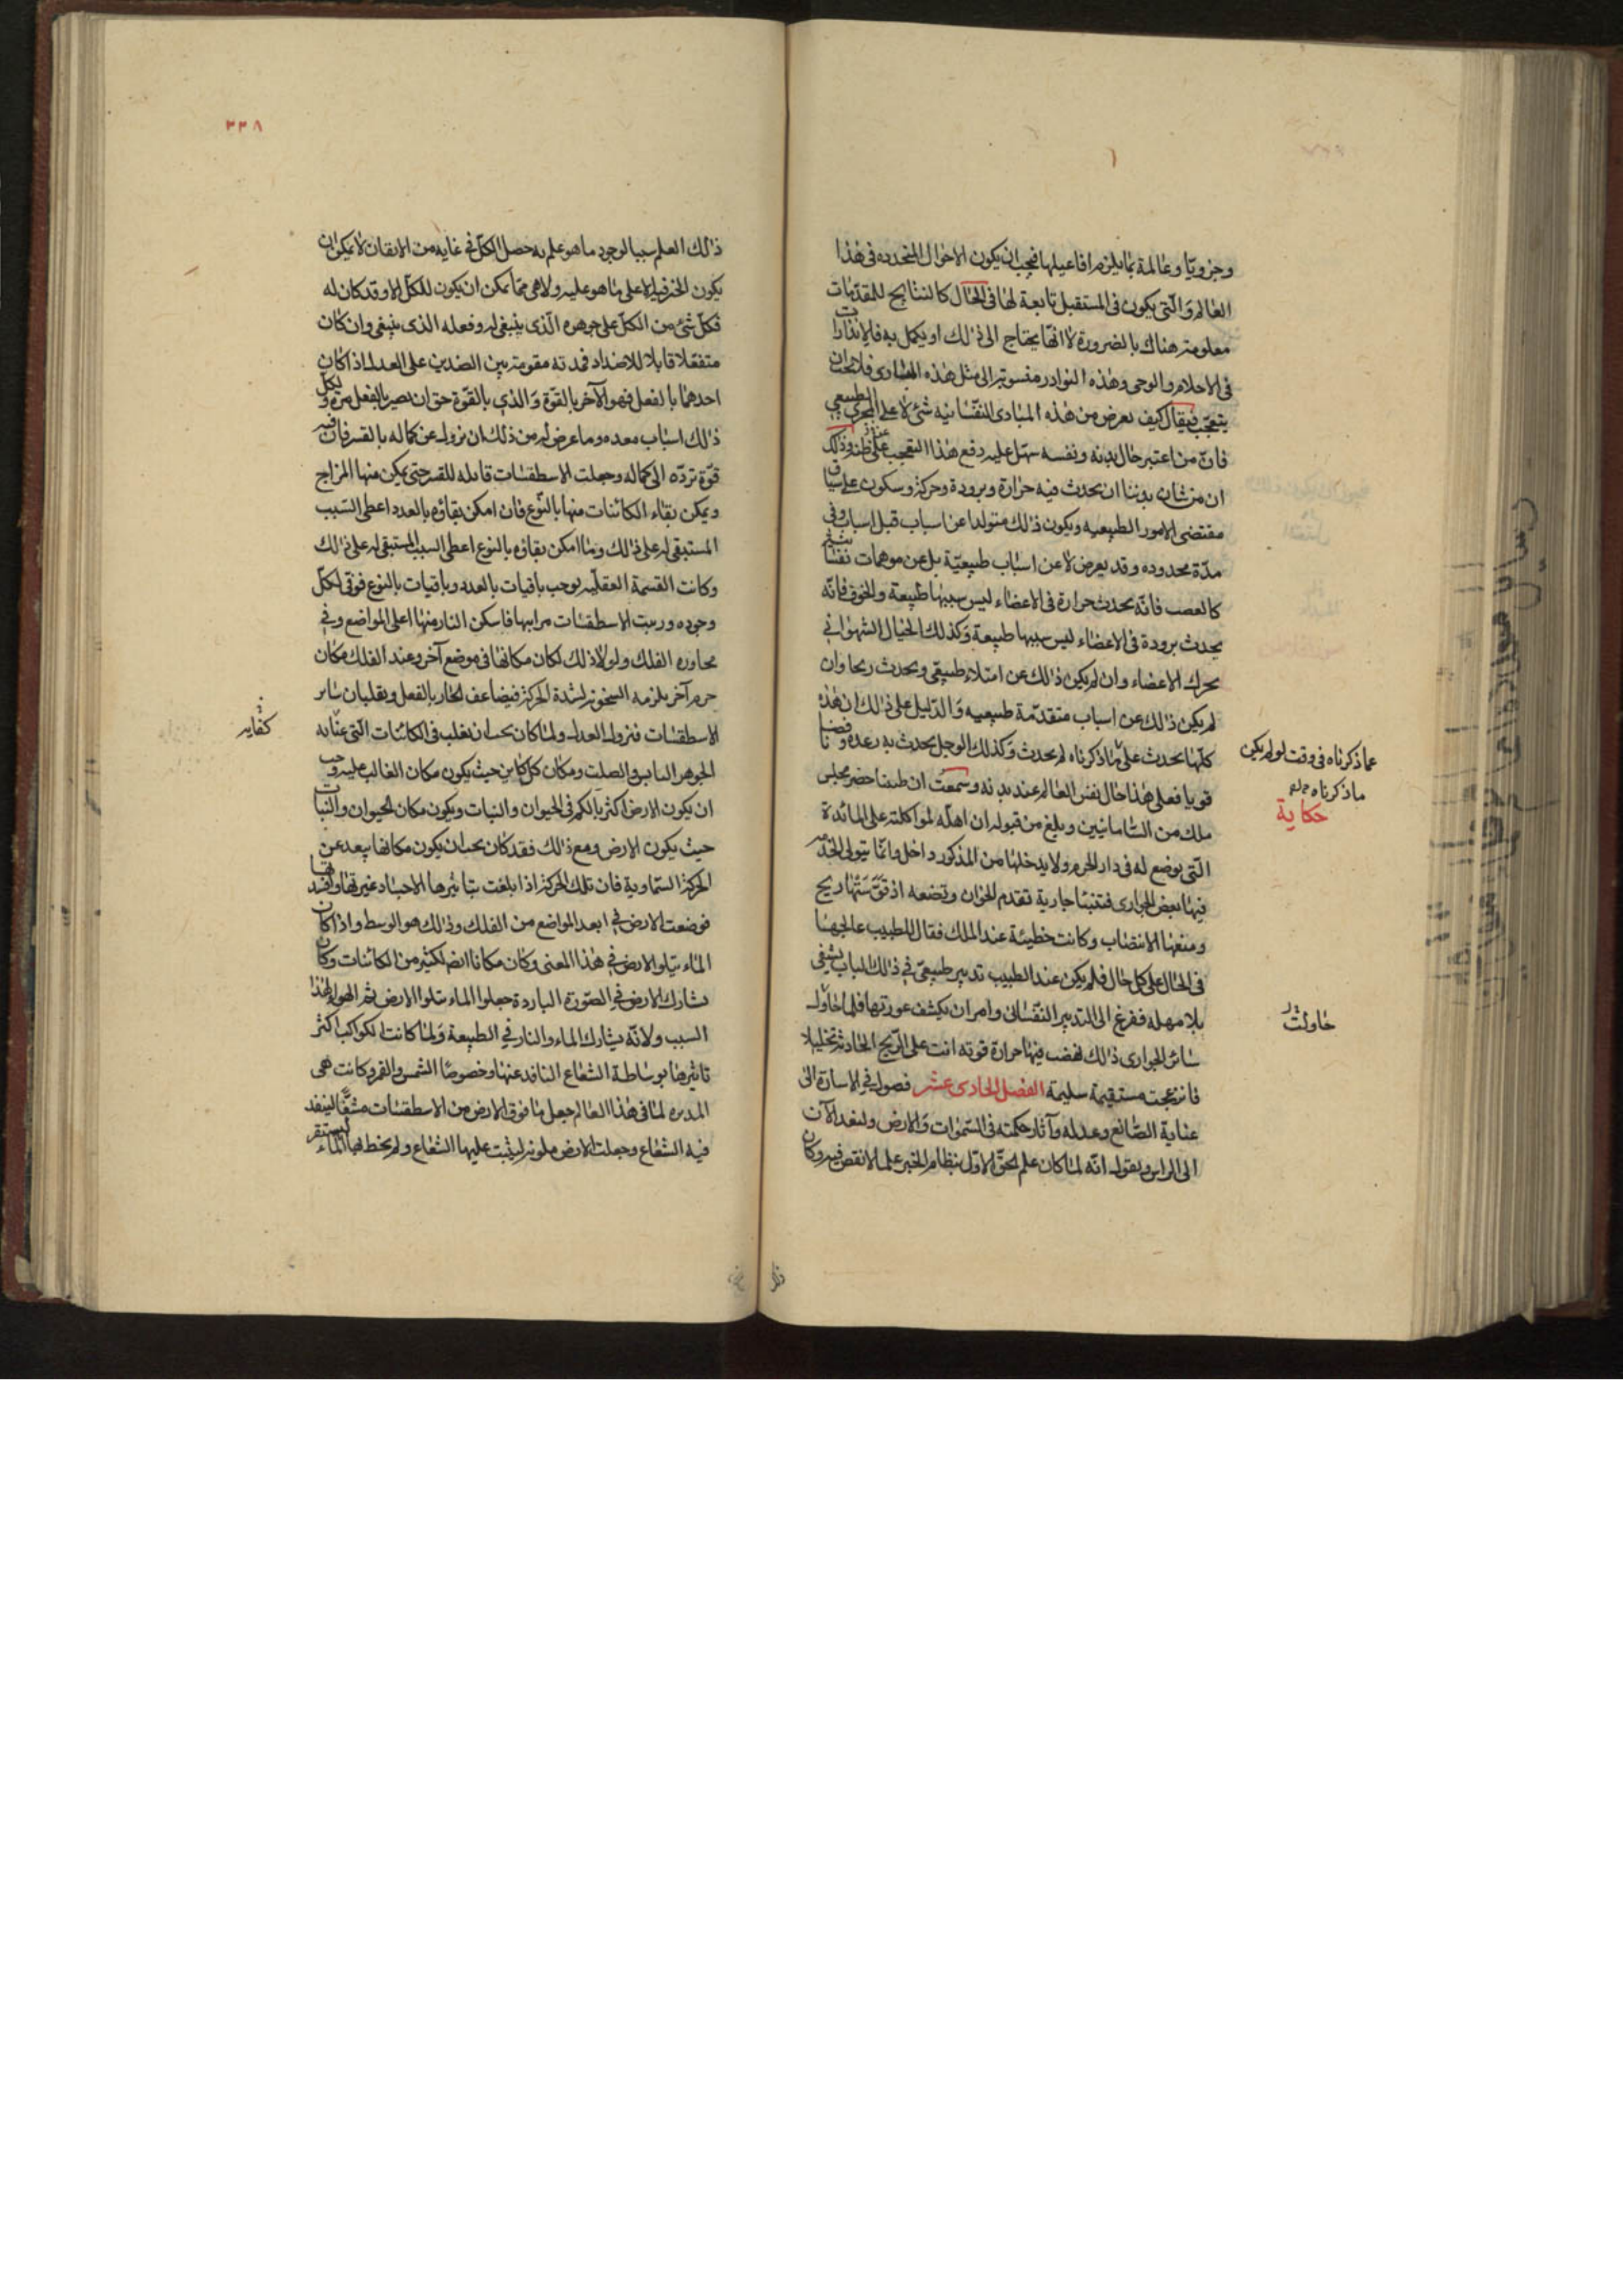 وجزويّا وعالمة بما يلزم افاعيلها فيجب ان يكون الاحوال المتجدده فى هذا
العالم والّتى يكون فى المستقبل تابعة لها فى الحال كالنتايج للمقدّمات
معلومة هناك بالضرورة لا انّها يحتاج الى ذلك او يكمل به فالانذارات
فى الاحلام والوحى وهذه النوادر منسوبة الى مثل هذه المبادى فلا يجب ان
يتعجّب فيقال كيف يعرض من هذه المبادى النفسانيه شئ لا على المجرى الطبيعى
فانّ من اعتبر حال بدنه ونفسه سهّل عليه دفع هذا التعجب عن ظنه وذلك
ان من شان بدننا ان يحدث فيه حرارة وبرودة وحركة وسكون على سياق
مقتضى الامور الطبيعيه ويكون ذلك متولدا عن اسباب قبل اسباب وفى
مدّة محدوده وقد يعرض لا عن اسباب طبيعيّة بل عن موهمات نفسانية
كالغضب فانّه يحدث حرارة فى الاعضاء ليس سببها طبيعة والخوف فانّه
يحدث برودة فى الاعضاء ليس سببها طبيعة وكذلك الخيال الشهوانى
يحرك الاعضاء وان لم يكن ذلك عن امتلاء طبيعى ويحدث ريحا وان
لم يكن ذلك عن اسباب متقدّمة طبيعيه والدّليل على ذلك ان هذه
كلّها يحدث على ما ذكرناه لم يحدث وكذلك الوجل يحدث به رعده ونافضا
عما ذكرناه فى وقت لو لم يكن
ما ذكرناه
حكاية
قويا فعلى هذا حال نفس العالم عند بدنه وسمعت ان طبيبا حضر مجلس
ملك من السّامانيين وبلغ من قبوله ان اهلّه لمواكلته على المائدة
الّتى يوضع له فى دار الحرم ولا يدخلها من الذكور داخل وانّما يتولى الخدمة
فيها بعض الجوارى فبينا جارية تقدم الخوان وتضعه اذ قوّستها ريح
ومنعها الانتصاب وكانت حظيئة عند الملك فقال للطبيب عالجها
فى الحال على كل حال فلم يكن عند الطبيب تدبير طبيعىّ فى ذلك الباب يشفى
بلا مهله ففزع الى التدبير النفسانى وامر ان يكشف عورتها فلما حاول
حاولت
سائر الجوارى ذلك نهض فيها حرارة قويه اتت على الريح الحادثة تحليلا
فانزعجت مستقيمة سليمة الفصل الحادى عشر فصول فى الاسارة الى
عناية الصّانع وعدله وآثار حكمته فى السّموات والارض ولنعد الآن
الى الراس ويقول انّه لمّا كان علم الحقّ الاوّل بنظام الخير علما لا نقص فيه وكان
ذلك
٣٣٨
ذلك العلم سببا لوجود ما هو علم به حصل الكلّ فى غايه من الاتقان لا يمكن ان
يكون الخير فيه الا على ما هو عليه ولا هى ممّا يمكن ان يكون للكلّ الا وقد كان له
فكلّ شئ من الكلّ على جوهره الّذى ينبغى له وفعله الذى ينبغى وان كان
منفعلا قابلا للاضداد فمدته مقومة بين الضدين على العدل اذا كان
احدهما بالفعل فهو الآخر بالقوّة والذى بالقوّة حق ان يصير بالفعل مرّه ولكلّ
ذلك اسباب معده وما عرض له من ذلك ان يزول عن كماله بالقسر فان فيه
قوّة تردّه الى كماله وجعلت الاسطقسات قابله للقسر حتى يمكن منها المزاج
ويمكن بقاء الكائنات منها بالنّوع فان امكن بقاؤه بالعدد اعطى السّبب
المستبقى له على ذلك وما امكن بقاؤه بالنوع اعطى السبب المستبقى له على ذلك
وكانت القسمة العقليّه يوجب باقيات بالعدد وباقيات بالنوع فوفى لكلّ
وجوده ورتبت الاسطقسات مراتبها فاسكن النار منها اعلى المواضع وفى
مجاوره الفلك ولو لا ذلك لكان مكانها فى موضع آخر وعند الفلك مكان
جرم آخر يلزمه السخونه لشدة الحركة فيضاعف الحار بالفعل ويغلبان ساير
الاسطقسات فنزول العدل ولمّا كان يجب ان يغلب فى الكائنات الّتى عنايه
كفايه
الجوهر اليابس والصلب ومكان كل كاين حيث يكون مكان الغالب عليه وجب
ان يكون الارض اكثر بالكم فى الحيوان والنبات ويكون مكان الحيوان والنبات
حيث يكون الارض ومع ذلك فقد كان يجب ان يكون مكانها يبعد عن
الحركة السّماوية فان تلك الحركة اذا بلغت بتاثيرها الاجساد غيرتها وافسدتها
فوضعت الارض فى ابعد المواضع من الفلك وذلك هو الوسط واذا كان
الماء يتلو الارض فى هذا المعنى وكان مكانا ايضا لكثير من الكائنات وكان
يشارك الارض فى الصّورة الباردة جعلوا الماء يتلوا الارض ثم الهواء لهذا
السبب ولانّه يشارك الماء والنار فى الطبيعة ولمّا كانت الكواكب اكثر
تاثيرها بوساطة الشعاع النافد عنها وخصوصًا الشمس والقمر وكانت هى
المدبره لما فى هذا العالم جعل ما فوق الارض من الاسطقسات مشفّا لينفد
فيه الشعاع وجعلت الارض ملونه ليثبت عليها الشعاع ولم يحط بها الماء ليستقر